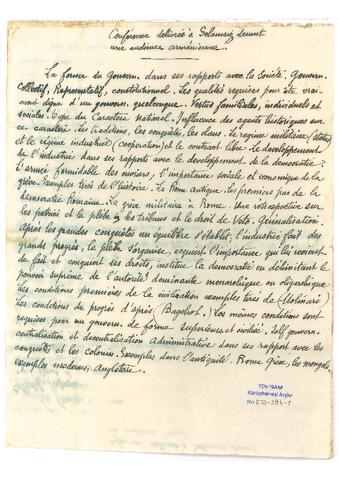 Conférence délivrée à Selamaig devant
une audience arménienne.
La forme du Gouvern. dans ses rapports avec la Société. Gouvern.
Collectif, Représentatif, constitutionnel. Les qualités requises pour être vrai-
ment digne d'un gouvern. quelconque. Vertus familiales, individuels et
sociales. Type du Caractère National. Influence des agents historiques sur
ce caractère. Les traditions, les conquêtes, les clans. Le régime militaire (status)
et le régime industriel (coopération) et le contrat libre. Le développement
de l'industrie dans ses rapports avec le développement de la démocratie.
L'armée formidable des ouvriers, l'importance sociale et économique de la
grève. Exemples tirés de l'histoire. La Rome antique. Les premiers pas de la
démocratie Romaine. La grève militaire à Rome. Une rétrospective sur
les patriciens et la plèbe, les tribunes et le droit de Veto. Généralisation.
Après les grandes conquêtes un équilibre s'établit, l'industrie fait des
grands progrès, la plèbe s'organise, acquiert l'importance qui lui revient
de fait et conquiert ses droits, institue la démocratie en délimitant le
pouvoir suprême de l'autorité dominante monarchique ou oligarchique
Les conditions premières de la civilisation exemples tirés de (Molinari)
les conditions du progrès d'après (Bagehot). Les mêmes conditions sont
requises pour un gouvern. de forme supérieure et civilisé. Self govern.
centralisation et décentralisation administrative dans ses rapport avec les
conquêtes et les colonies. Exemples dans l'antiquité. Rome Grèce, les mongols.
exemples modernes, Angleterre.
TDV İSAM
Kütüphanesi Arşivi
No 2TB-294-1